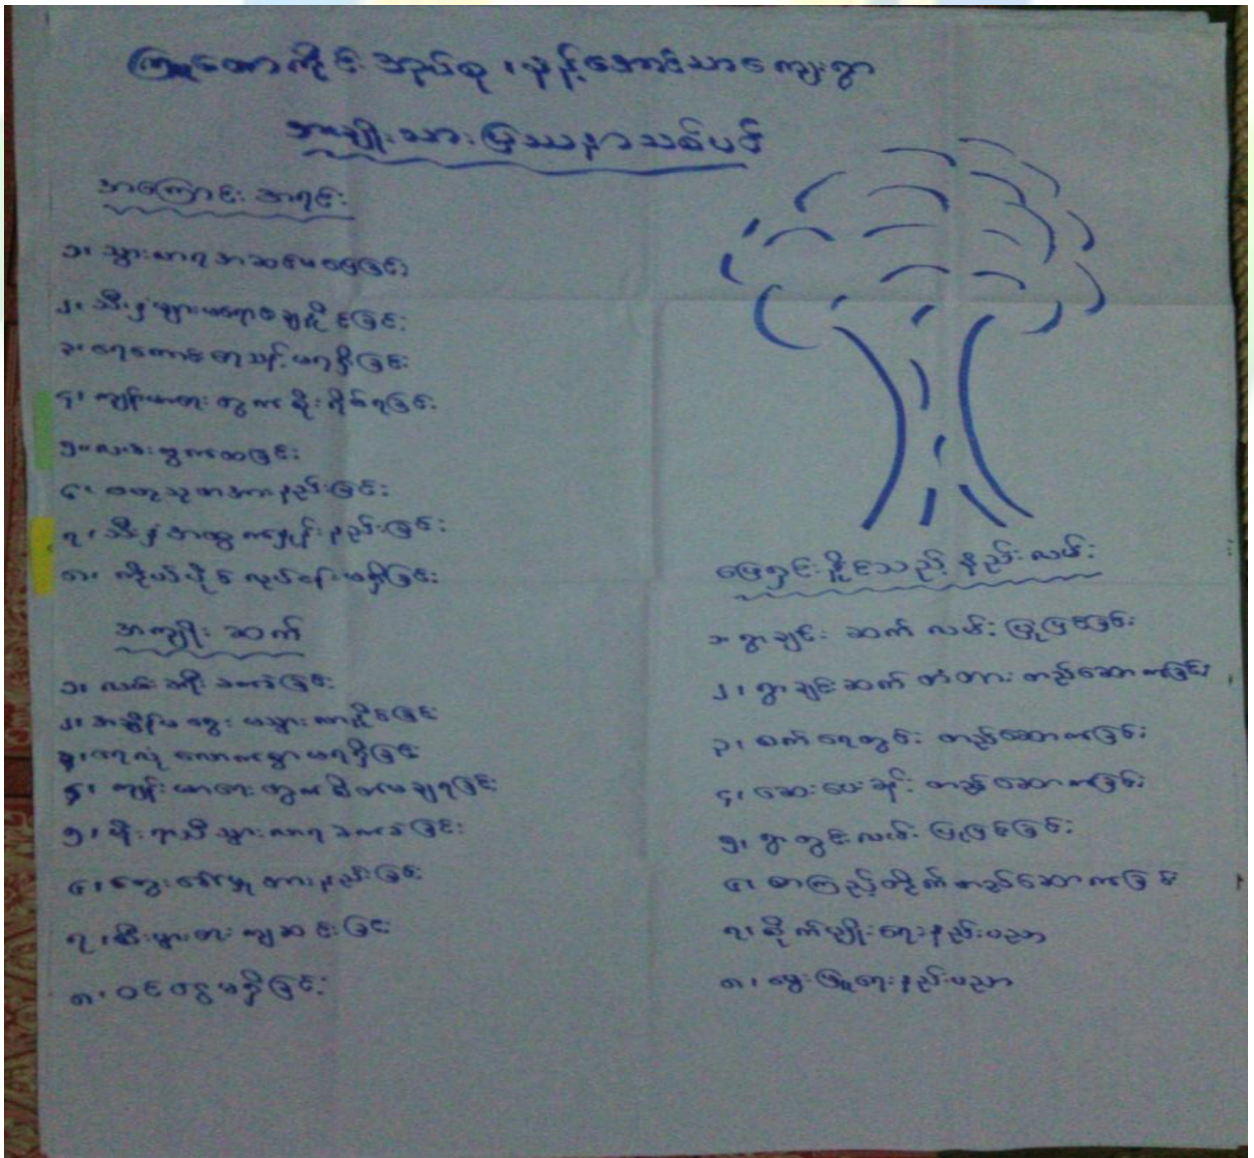 ကြူတောကိုင်း အုပ်စု ၊ မှန့်အောင်သာ ကျေးရွာ
အမျိုးသား ပြဿနာသစ်ပင်
အကြောင်း အရင်း
၁၊ သွားလာရ အဆင်မပြေခြင်း
၂၊ သီးနှံများမရောင်းချနိုင်ခြင်း
၃၊ ရေကောင်းရေသန့် မရရှိခြင်း
၄၊ ကျန်းမာရေး အတွက် စိုးရိမ်ရခြင်း
၅၊ လမ်း
၆၊ ပညာ အားနည်းခြင်း
၇၊ သီးနှံအထွက်နှုန်း နည်းခြင်း
၈၊ ကိုယ်ပိုင် လုပ်ငန်းမရှိခြင်း
အကျိုး ဆက်
၁၊ လမ်းခရီး ခက်ခဲခြင်း
၂၊ အချိန်မရွေး မသွားလာနိုင်ခြင်း
၃၊ ရေလုံလောက်စွာမရရှိခြင်း
၄၊ ကျန်းမာရေးအတွက် စိတ်မချရခြင်း
၅၊ မိုးရာသီ သွားလာရ ခက်ခဲခြင်း
၆၊ အားနည်းခြင်း
၇၊ စီးပွားရေး ကျဆင်းခြင်း
၈၊ ဝင်ငွေမရှိခြင်း
ဖြေရှင်းနိုင်သည့် နည်းလမ်း
၁၊ ရွာချင်း ဆက် လမ်း ပြုပြင်ခြင်း
၂၊ ရွာချင်းဆက် တံတား တည်ဆောက်ခြင်း
၃၊ စက်ရေတွင်း တည်ဆောက်ခြင်း
၄၊ ဆေးပေးခန်း တည်ဆောက်ခြင်း
၅၊ ရွာတွင်းလမ်း ပြုပြင်ခြင်း
၆၊ စာကြည့်တိုက် တည်ဆောက်ခြင်း
၇၊ စိုက်ပျိုးရေးနည်းပညာ
၈၊ မွေးမြူရေးနည်းပညာ